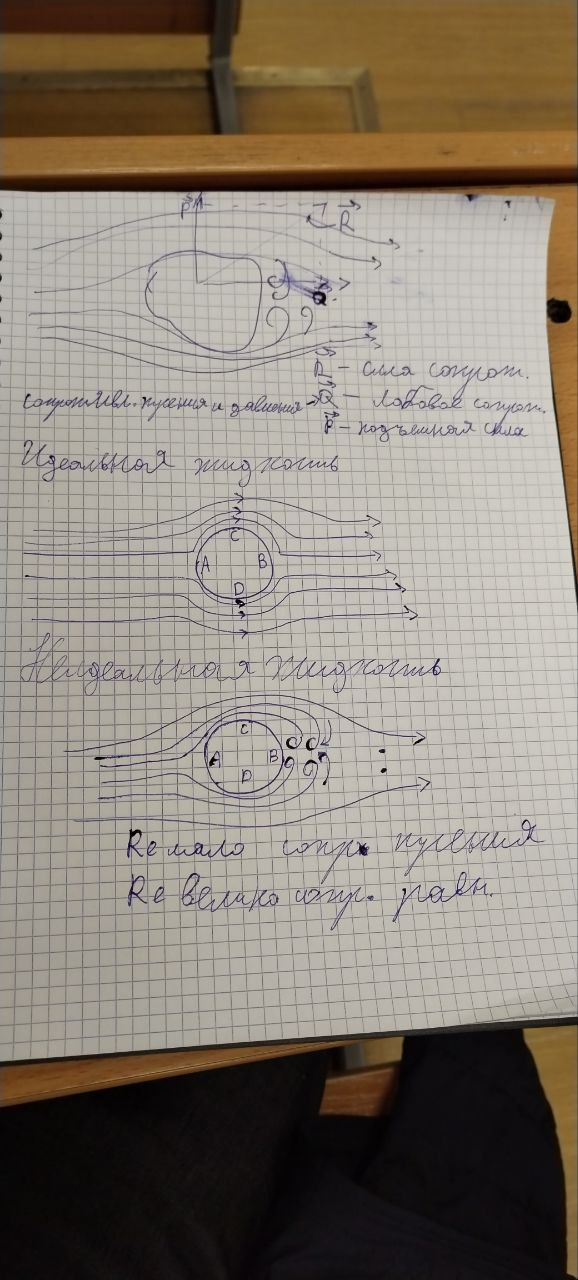 P
R
Q
R – сила сопрот.
сопротивл. трения и давления → Q – Лобовое сопрот.
P – подъемная сила
Идеальная жидкость
C
A B
D
Неидеальная жидкость
C
A B
D
Re мало сопр. трения
Re велико сопр.